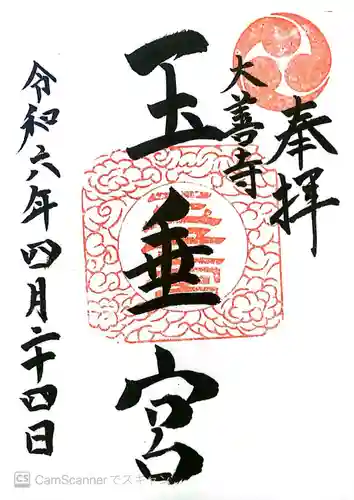 奉拝
大善寺
玉垂宮
令和六年四月二十四日
CS CamScannerでスキャン